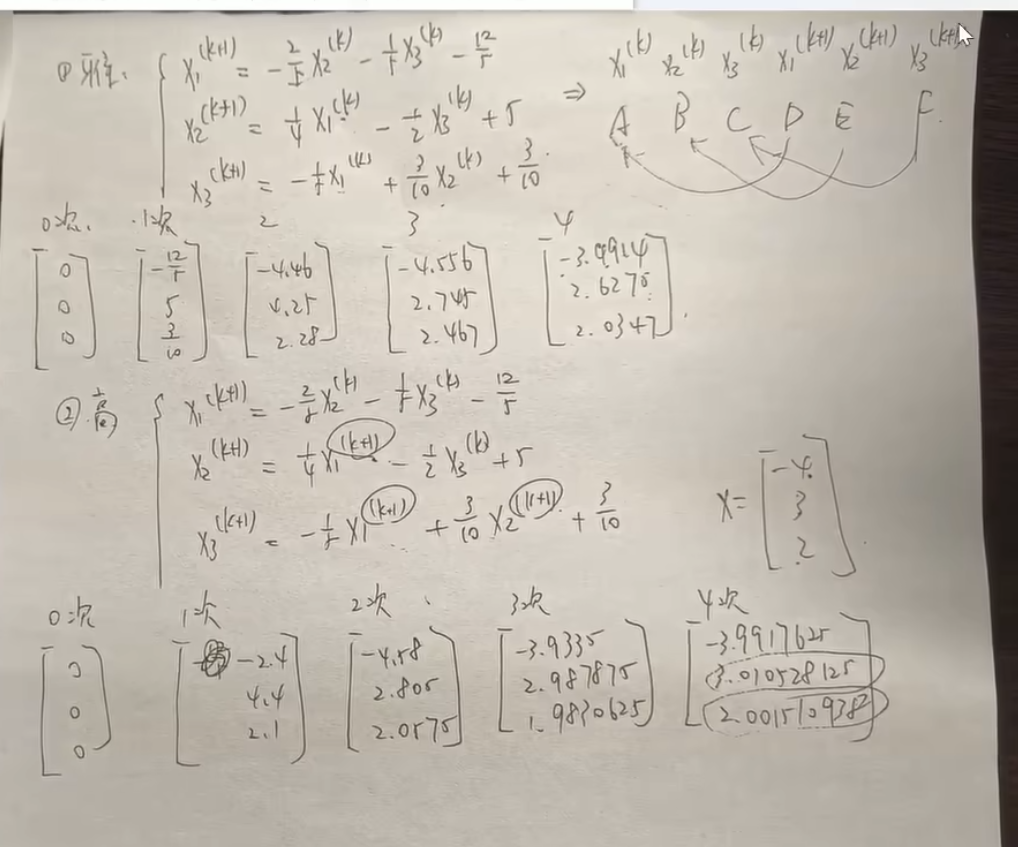 ① 雅: { x₁^(k+1) = -2/5 x₂^(k) - 1/5 x₃^(k) - 12/5
x₂^(k+1) = 1/4 x₁^(k) - 1/2 x₃^(k) + 5
x₃^(k+1) = -1/5 x₁^(k) + 3/10 x₂^(k) + 3/10
⇒ x₁^(k) x₂^(k) x₃^(k) x₁^(k+1) x₂^(k+1) x₃^(k+1)
A B C D E F
0次. 1次 2 3 4
[0 0 0] [-12/5 5 3/10] [-4.46 4.25 2.28] [-4.556 2.745 2.467] [-3.9914 2.6275 2.0347]
② 高 { x₁^(k+1) = -2/5 x₂^(k) - 1/5 x₃^(k) - 12/5
x₂^(k+1) = 1/4 x₁^(k+1) - 1/2 x₃^(k) + 5
x₃^(k+1) = -1/5 x₁^(k+1) + 3/10 x₂^(k+1) + 3/10
x = [-4 3 2]
0次 1次 2次 3次 4次
[0 0 0] [-2.4 4.4 2.1] [-4.58 2.805 2.0575] [-3.9335 2.987875 1.9830625] [-3.9917625 3.010528125 2.001510938]